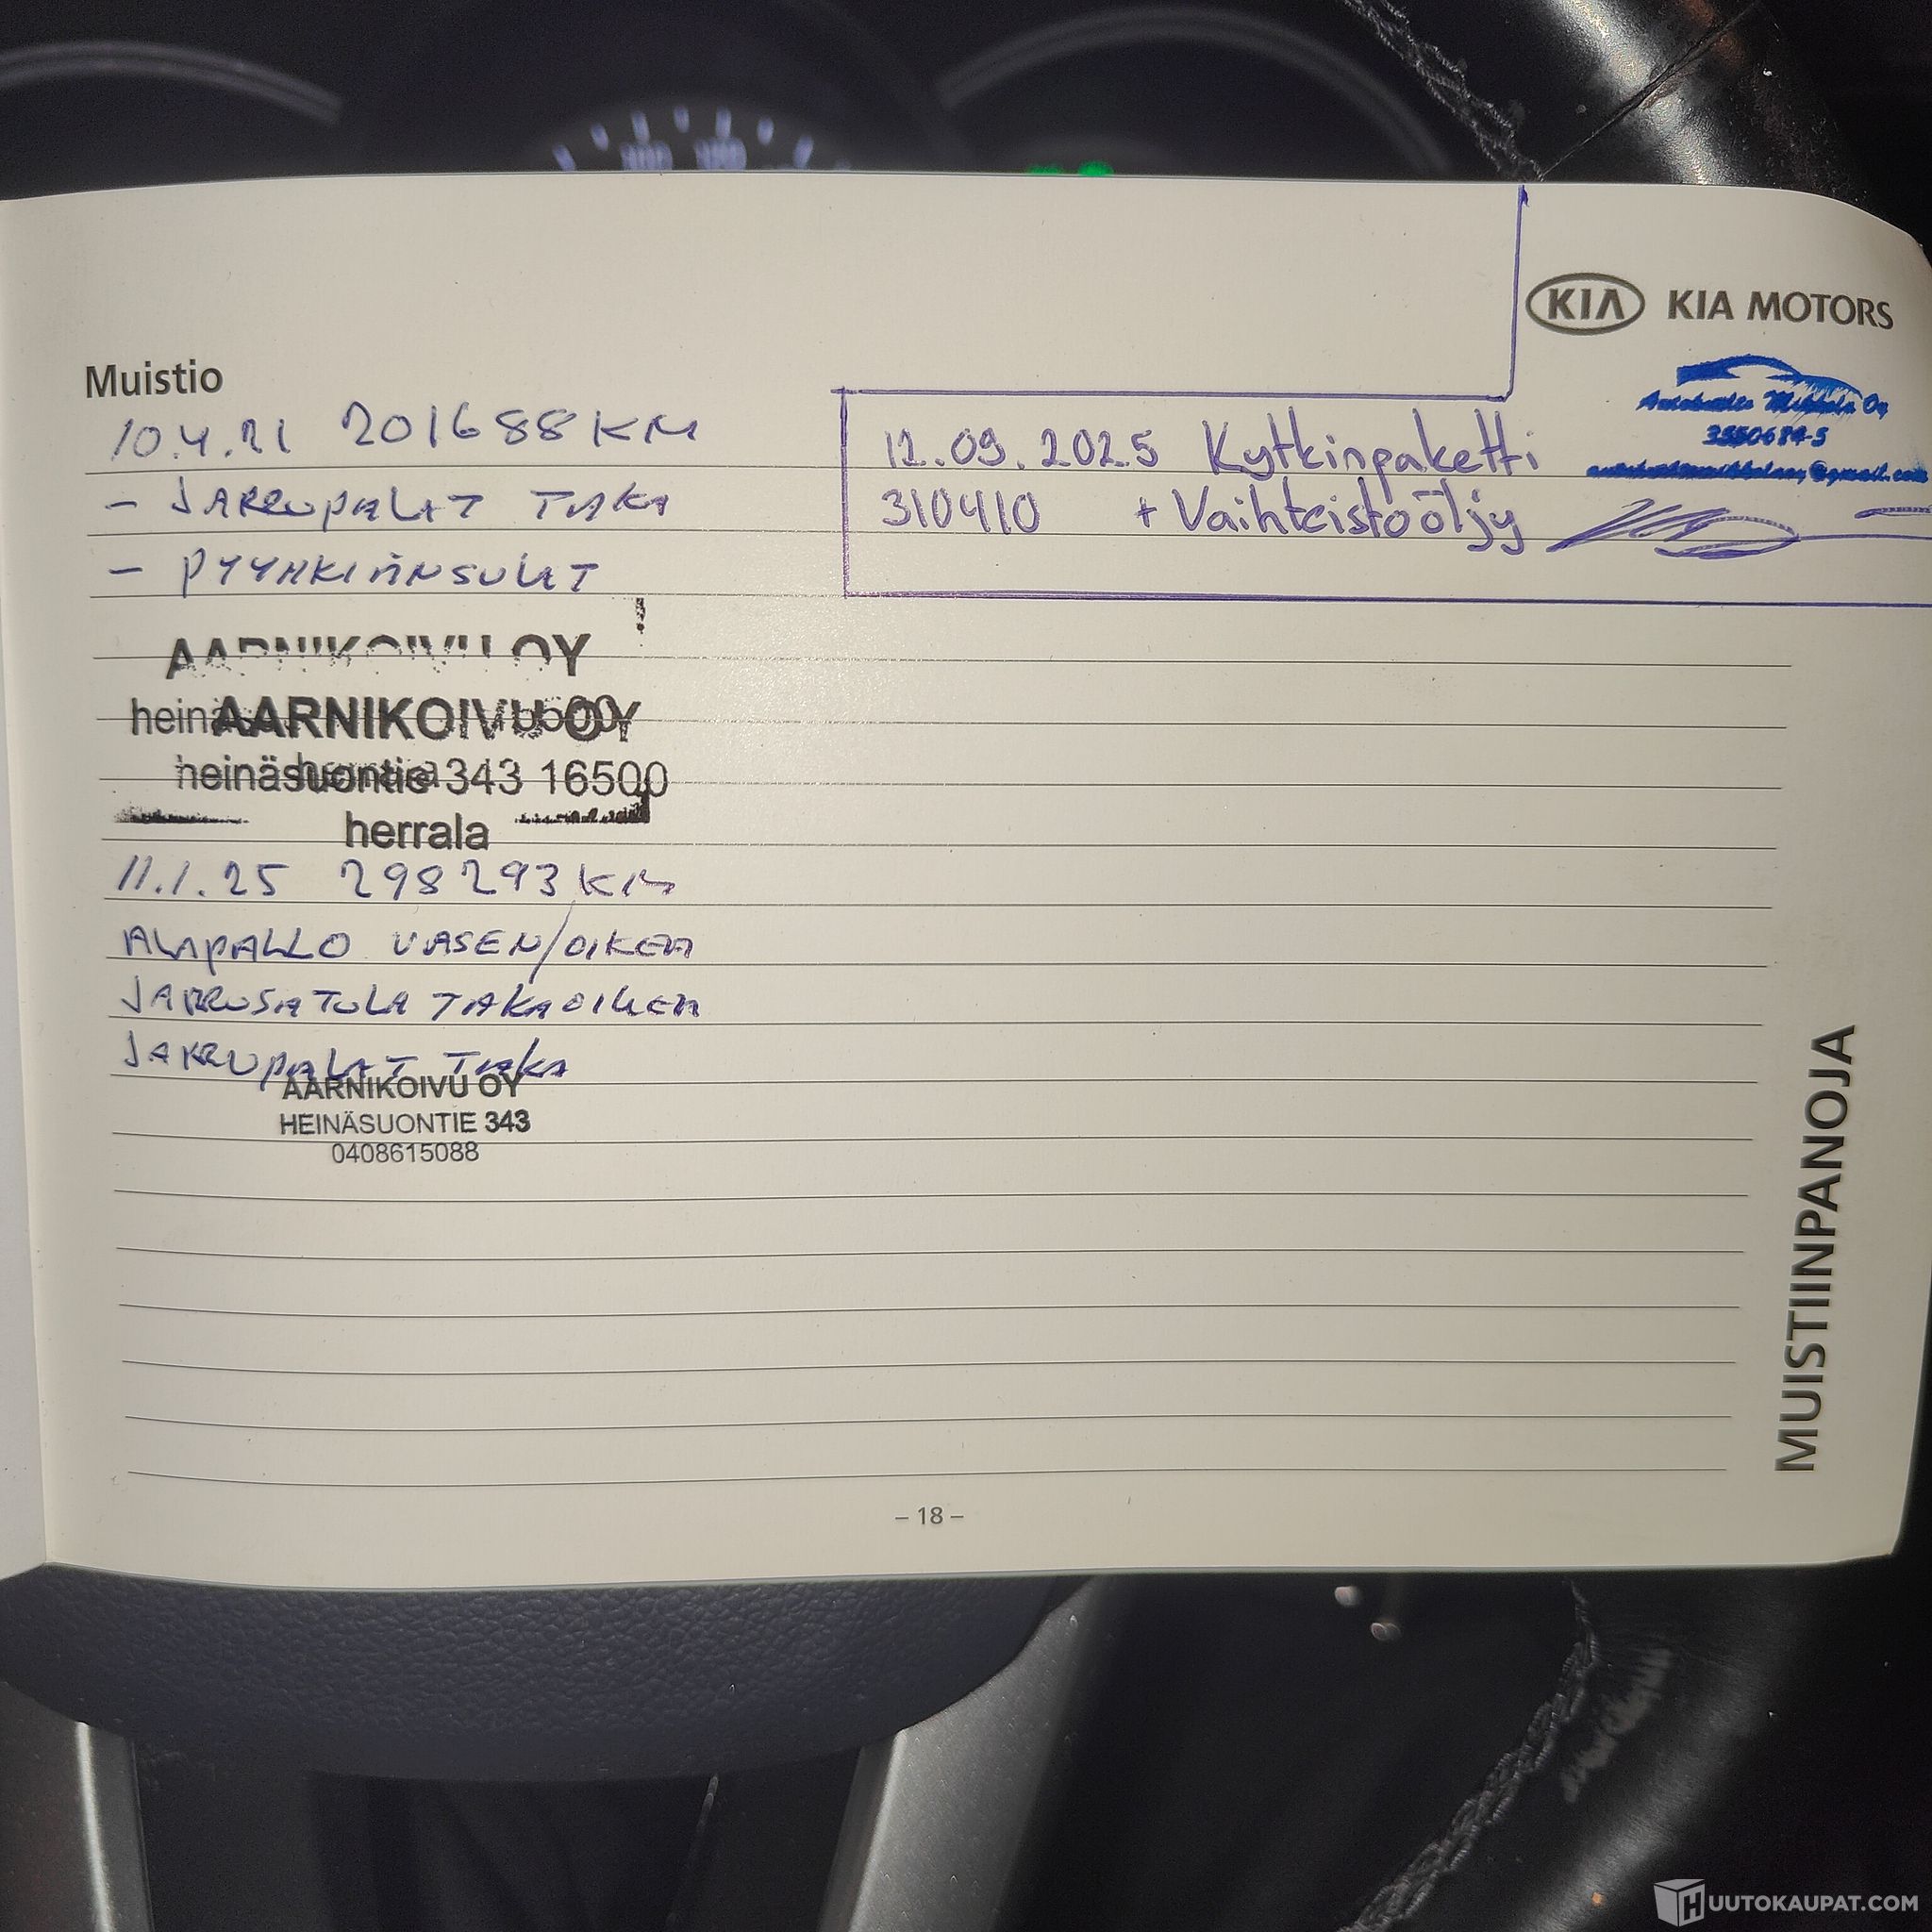 KIA KIA MOTORS
Muistio
10.4.21 201688 KM
- JARRUPALAT TAKA
- PYYHKIJÄNSULAT
AARNIKOIVU OY
AARNIKOIVU OY
heinäsuontie 343 16500
herrala
11.1.25 298293 KM
ALAPALLO VASEN/OIKEA
JARRUSATULA TAKAOIKEA
JARRUPALAT TAKA
AARNIKOIVU OY
HEINÄSUONTIE 343
0408615088
12.09.2025 Kytkinpaketti
310410 + Vaihteistoöljy
Mikkola Oy
@gmail.com
MUISTIINPANOJA
– 18 –
HUUTOKAUPAT.COM